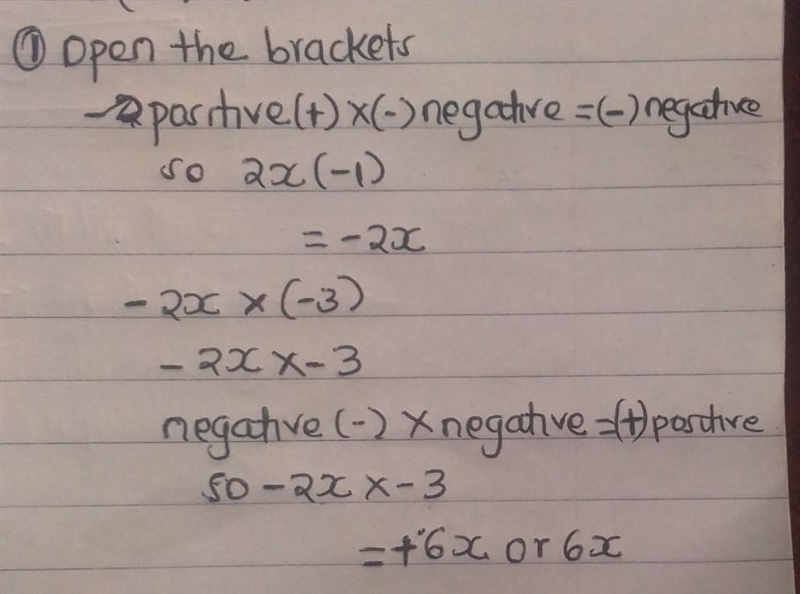 ① Open the brackets
positive(+)×(-)negative=(-)negative
so 2x(-1)
= -2x
- 2x × (-3)
- 2x × - 3
negative (-) × negative=(+)positive
so - 2x × - 3
= +6x or 6x